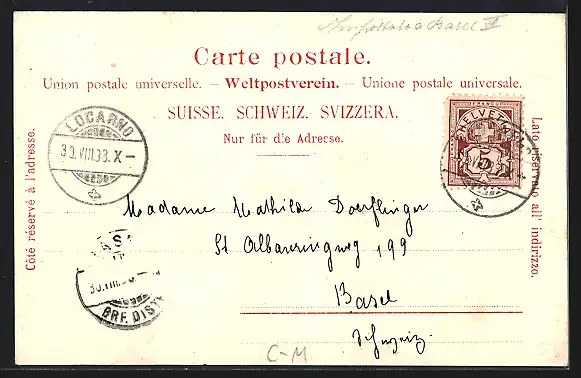 à Basel II
Carte postale.
Union postale universelle. – Weltpostverein. – Unione postale universale.
SUISSE. SCHWEIZ. SVIZZERA.
Nur für die Adresse.
Côté réservé à l'adresse.
Lato riservato all' indirizzo.
LOCARNO
30.VIII.98.X–
FRANCO
HELVETIA
5
BRF. DIST
Madame Mathilde Doerflinger
St Albanringweg 199
Basel
Schweiz.
C-M